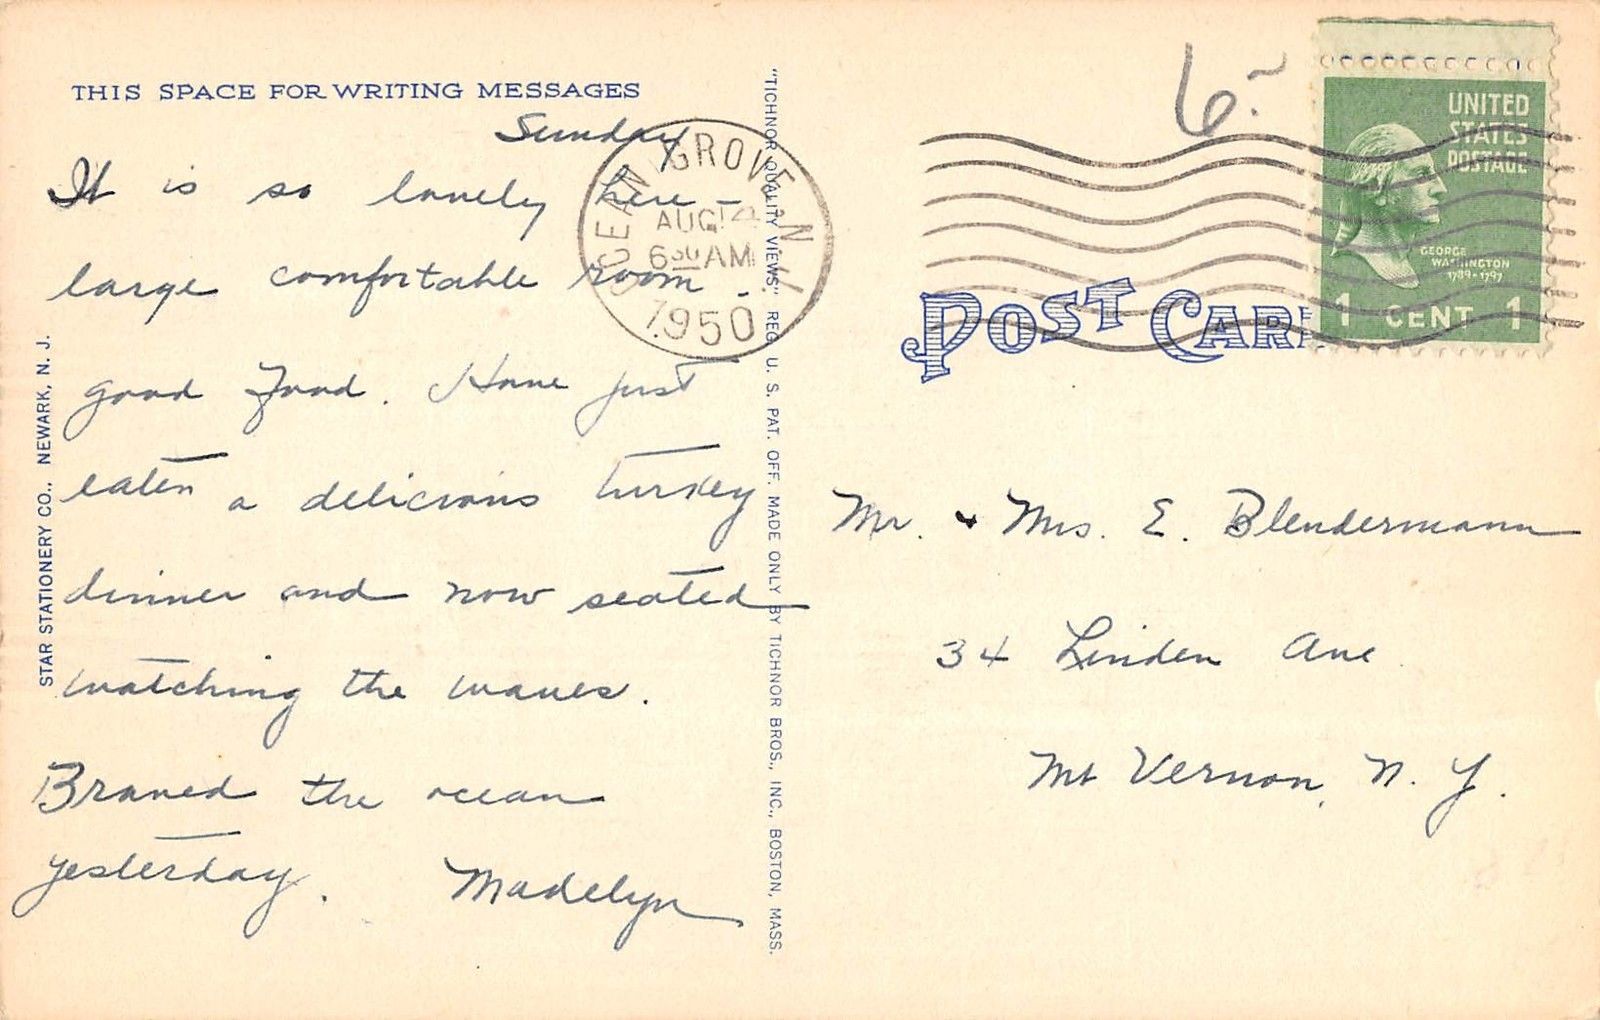 THIS SPACE FOR WRITING MESSAGES
Sunday
It is so lovely here -
large comfortable room -
good food. Have just
eaten a delicious turkey
dinner and now seated
watching the waves.
Braved the ocean
yesterday. Madelyn
STAR STATIONERY CO., NEWARK, N. J.
"TICHNOR QUALITY VIEWS." REG. U. S. PAT. OFF. MADE ONLY BY TICHNOR BROS., INC., BOSTON, MASS.
OCEAN GROVE N.J.
AUG 14
6 30 AM
1950
6.-
UNITED
STATES
POSTAGE
GEORGE
WASHINGTON
1789-1797
1 CENT 1
POST CARD
Mr. & Mrs. E. Blendermann
34 Linden Ave
Mt Vernon, N. Y.